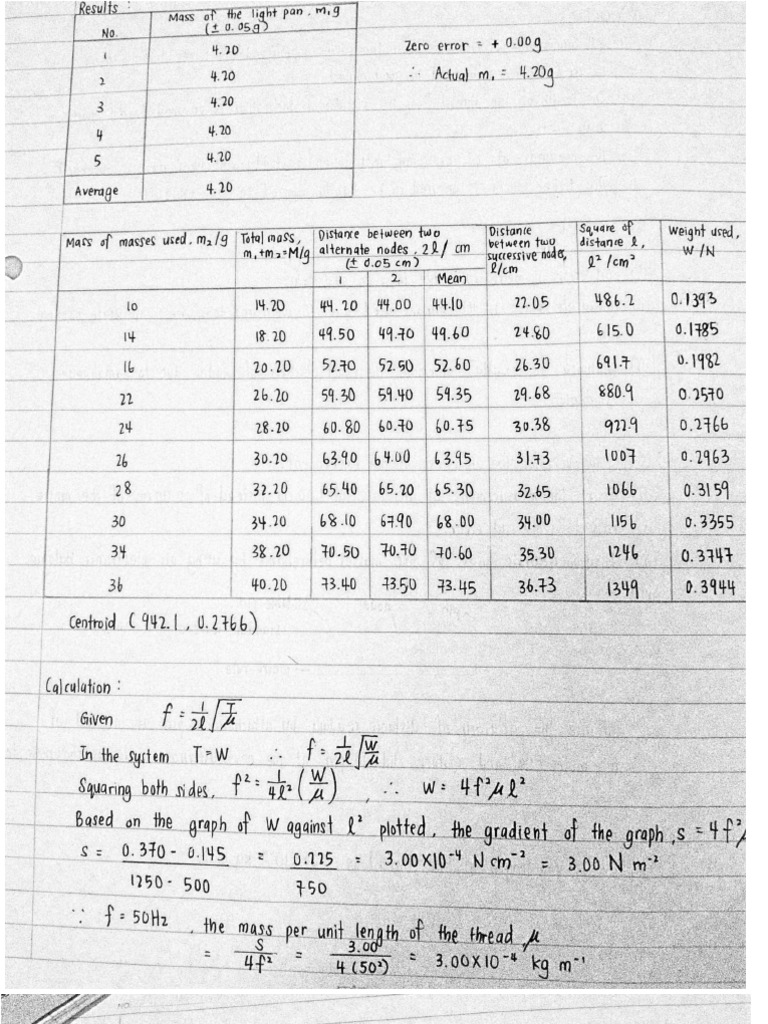 Results :
No. Mass of the light pan, m₁g (± 0.05g)
1 4.20
2 4.20
3 4.20
4 4.20
5 4.20
Average 4.20
Zero error = + 0.00g
∴ Actual m₁ = 4.20g
Mass of masses used, m₂/g Total mass, m₁+m₂=M/g Distance between two alternate nodes, 2l/cm (± 0.05 cm) Distance between two successive nodes, l/cm Square of distance l, l²/cm² Weight used, W/N
1 2 Mean
10 14.20 44.20 44.00 44.10 22.05 486.2 0.1393
14 18.20 49.50 49.70 49.60 24.80 615.0 0.1785
16 20.20 52.70 52.50 52.60 26.30 691.7 0.1982
22 26.20 59.30 59.40 59.35 29.68 880.9 0.2570
24 28.20 60.80 60.70 60.75 30.38 922.9 0.2766
26 30.20 63.90 64.00 63.95 31.73 1007 0.2963
28 32.20 65.40 65.20 65.30 32.65 1066 0.3159
30 34.20 68.10 67.90 68.00 34.00 1156 0.3355
34 38.20 70.50 70.70 70.60 35.30 1246 0.3747
36 40.20 73.40 73.50 73.45 36.73 1349 0.3944
Centroid (942.1, 0.2766)
Calculation :
Given f = 1/2l √(T/μ)
In the system T = W ∴ f = 1/2l √(W/μ)
Squaring both sides, f² = 1/4l² (W/μ), ∴ W = 4f²μl²
Based on the graph of W against l² plotted, the gradient of the graph, s = 4f²μ
s = (0.370 - 0.145)/(1250 - 500) = 0.225/750 = 3.00×10⁻⁴ N cm⁻² = 3.00 N m⁻²
∵ f = 50Hz, the mass per unit length of the thread μ
= s/4f² = 3.00/4(50²) = 3.00×10⁻⁴ kg m⁻¹
NO.